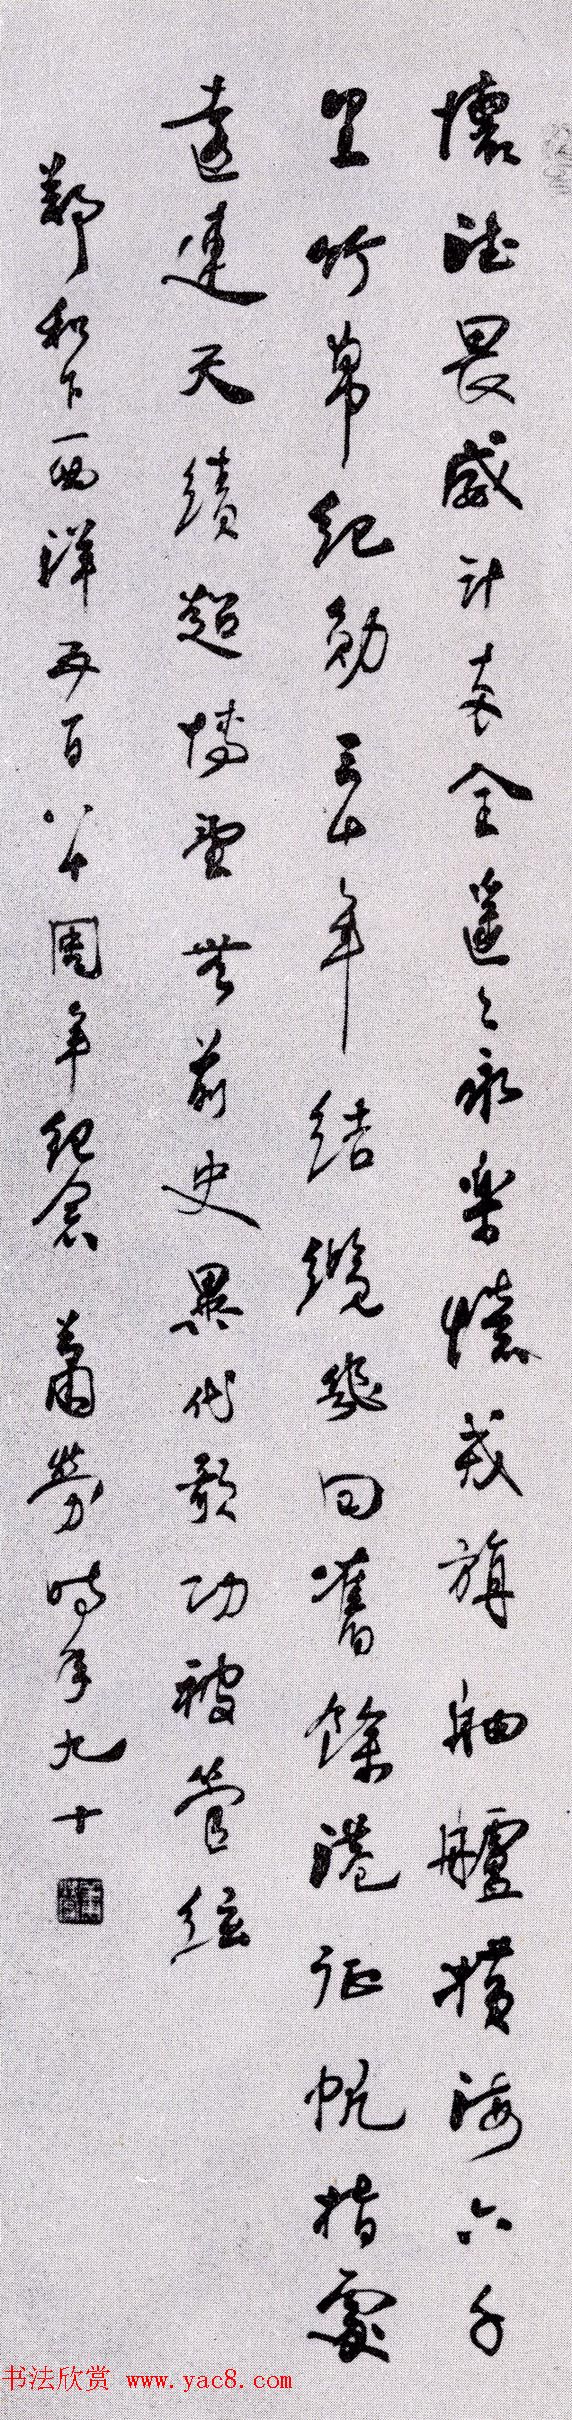 懷德畏威計全遙〻永樂憶戎旃舳艫橫海六千
里竹帛紀勛三十年結纜幾回舊餘港征帆指處
遠連天績超博望無前史異代歌功被管絃
鄭和下西洋五百八十周年紀念 蕭勞時年九十
书法欣赏 www.yac8.com